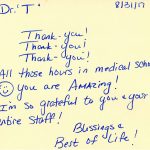 Dr. "T" 8/31/17
Thank-you!
Thank-you!
Thank-you!
All those hours in medical school
you are AMAZING!
I'm so grateful to you & your
entire Staff!
Blessings &
Best of Life!